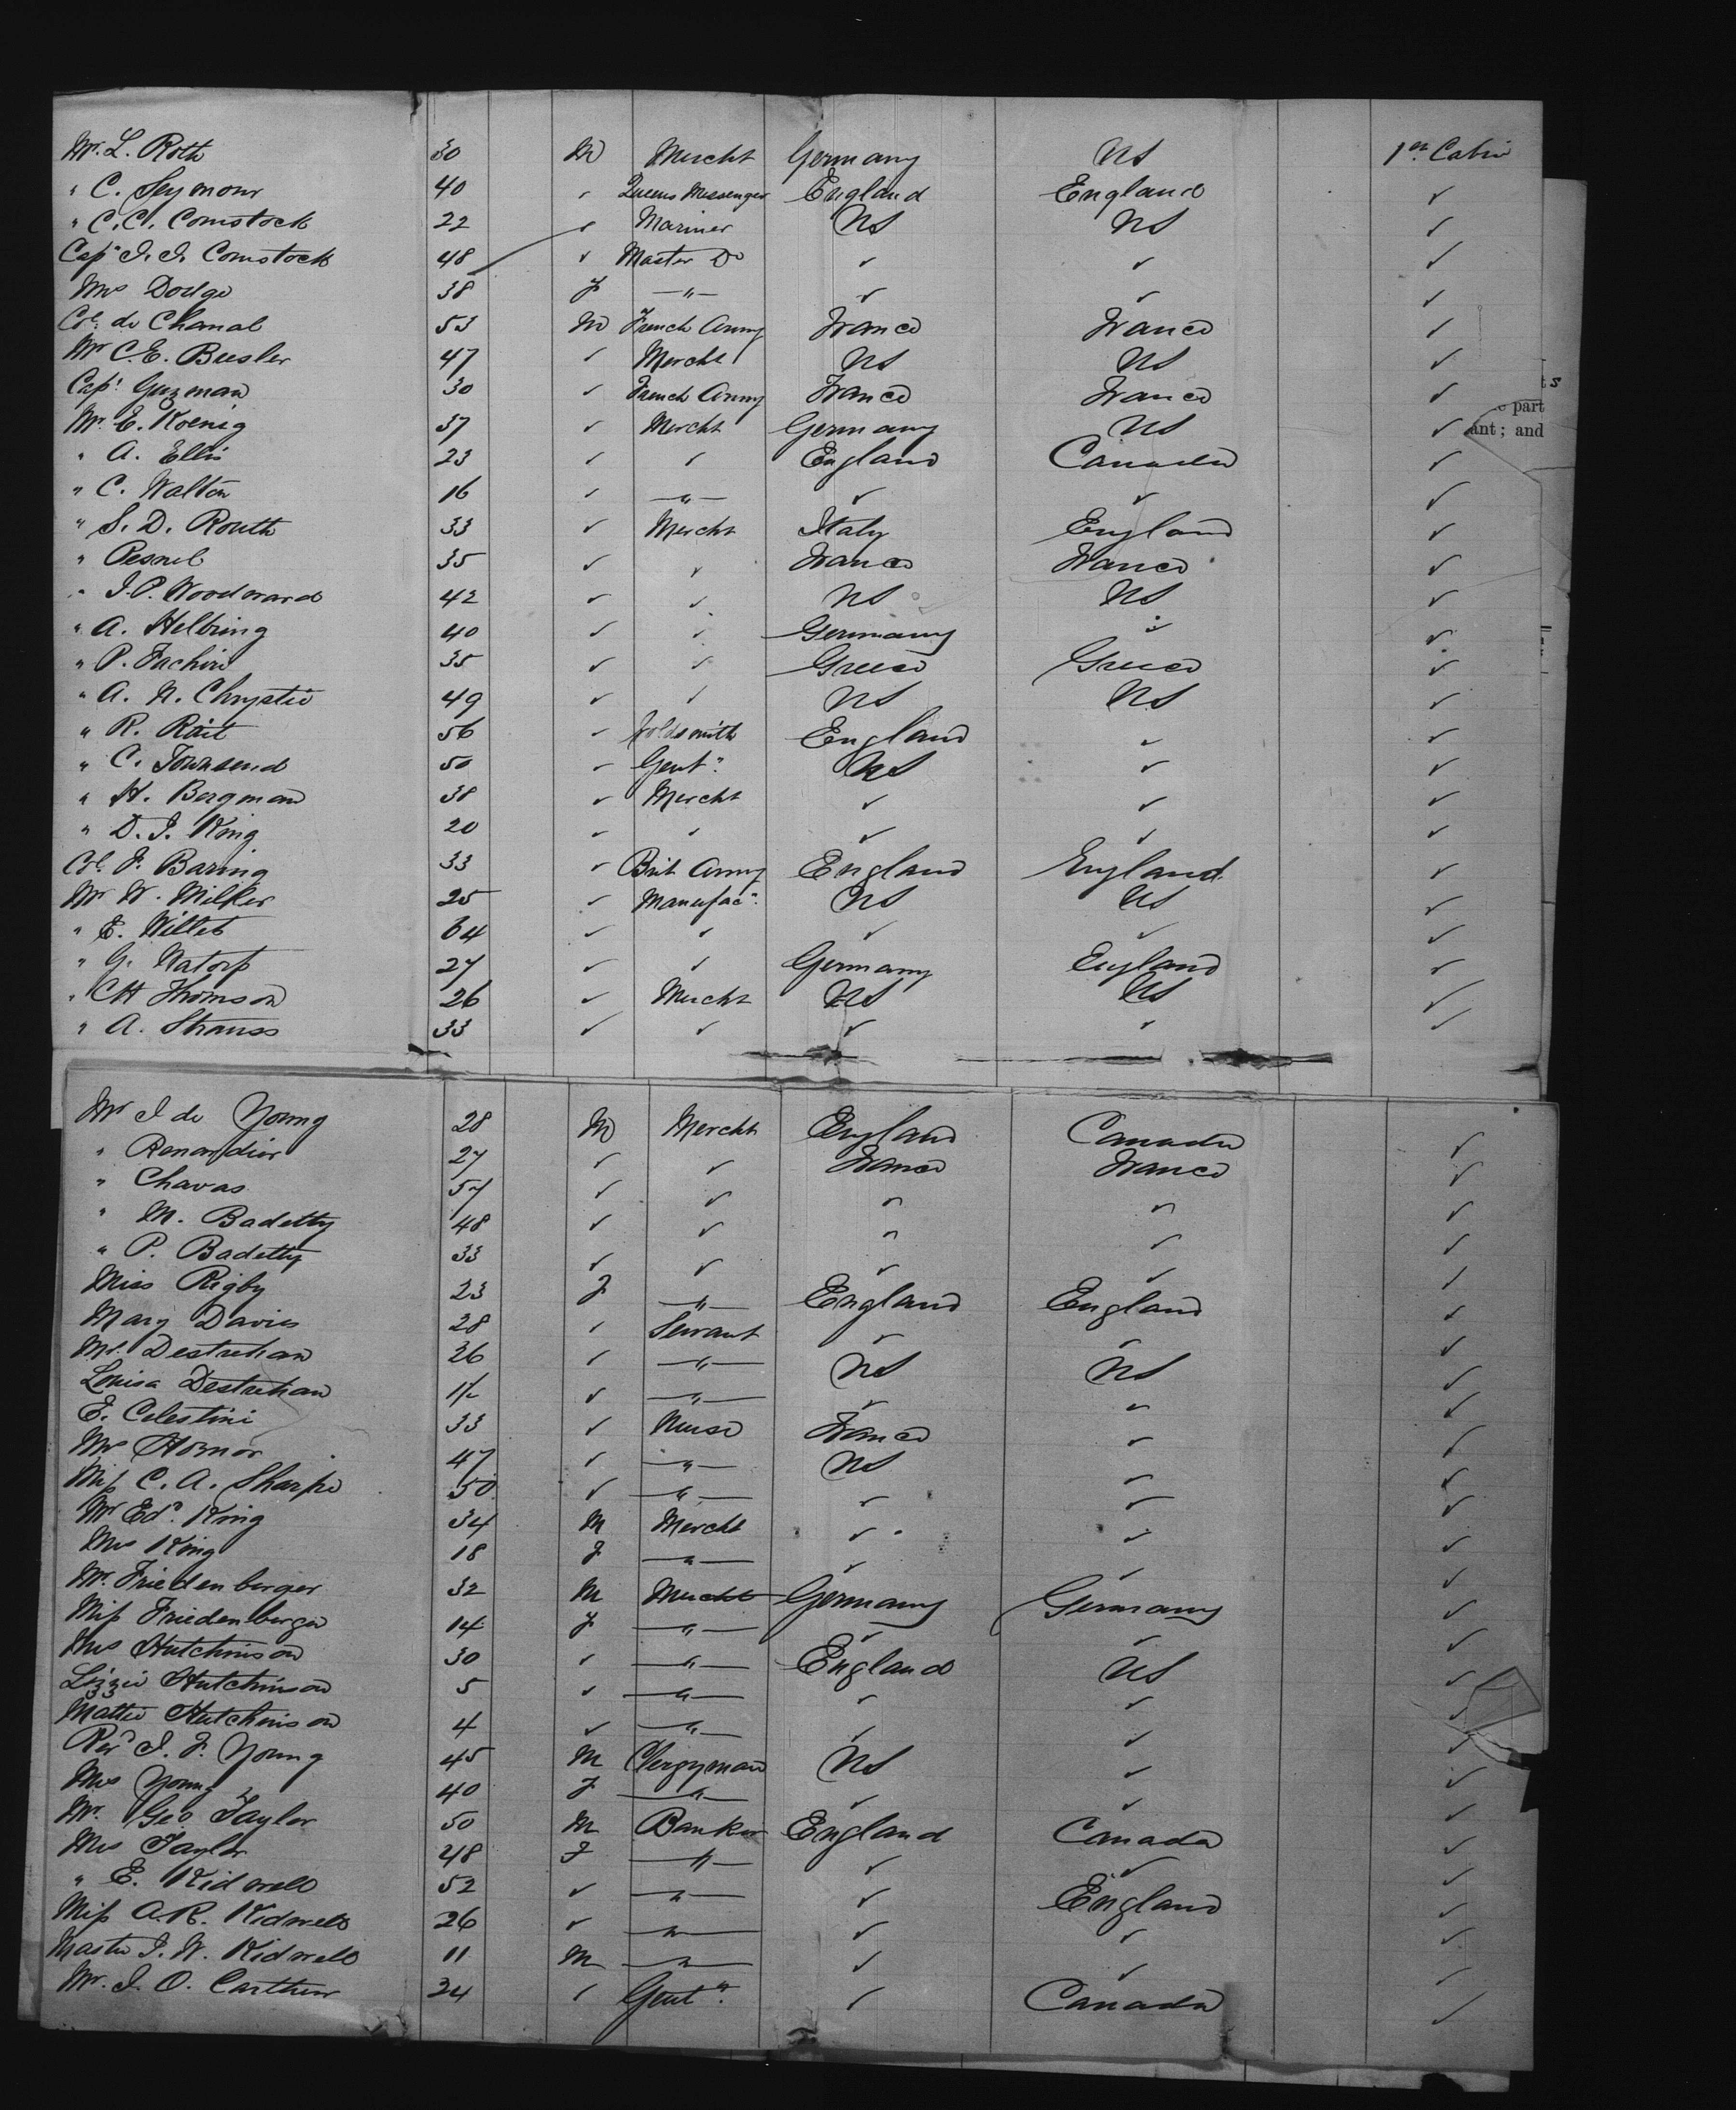 Mr. L. Roth 30 M Mercht Germany US 1st Cabin
" C. Seymour 40 ✓ Queens Messenger England England ✓
" C. C. Comstock 22 ✓ Mariner US US ✓
Capn J. J. Comstock 48 ✓ Master Do ✓ ✓ ✓
Mrs Dodge 38 F —"— ✓ ✓ ✓
Col. de Chanal 53 M French Army France France ✓
Mr C. E. Busler 47 ✓ Mercht US US ✓
Capt. Guzman 30 ✓ French Army France France ✓
Mr. E. Koenig 37 ✓ Mercht Germany US ✓
" A. Ellis 23 ✓ ✓ England Canada ✓
" C. Walton 16 ✓ —"— ✓ ✓ ✓
" S. D. Routh 33 ✓ Mercht Italy England ✓
" Pesnel 35 ✓ ✓ France France ✓
" J. P. Woodward 42 ✓ ✓ US US ✓
" A. Helbring 40 ✓ ✓ Germany " ✓
" P. Fachiri 35 ✓ ✓ Greece Greece ✓
" A. N. Chrystie 49 ✓ ✓ US US ✓
" R. Rait 56 ✓ Goldsmith England ✓ ✓
" C. Townsend 50 ✓ Gentn. US ✓ ✓
" H. Bergman 38 ✓ Mercht ✓ ✓ ✓
" D. J. King 20 ✓ ✓ ✓ ✓ ✓
Col. F. Baring 33 ✓ Brit Army England England ✓
Mr W. Milker 25 ✓ Manufacr. US US ✓
" E. Willet 64 ✓ ✓ ✓ ✓ ✓
" G. Natorp 27 ✓ ✓ Germany England ✓
" C H Thomson 26 ✓ Mercht US US ✓
" A. Strauss 33 ✓ ✓ ✓ ✓ ✓
part
ant; and
Mr J de Young 28 M Mercht England Canada ✓
" Renardier 27 ✓ ✓ France France ✓
" Chavas 57 ✓ ✓ ✓ ✓ ✓
" M. Badetty 48 ✓ ✓ ✓ ✓ ✓
" P. Badetty 33 ✓ ✓ ✓ ✓ ✓
Miss Rigby 23 F —"— England England ✓
Mary Davies 28 ✓ Servant ✓ ✓ ✓
Mrs. Destrehan 26 ✓ —"— US US ✓
Louisa Destrehan ✓ —"— ✓ ✓ ✓
E. Celestini 33 ✓ Nurse France ✓ ✓
Mrs Hornor 47 ✓ —"— US ✓ ✓
Miss C. A. Sharpe 50 ✓ —"— ✓ ✓ ✓
Mr Edd. King 34 M Mercht ✓ ✓ ✓
Mrs King 18 F —"— ✓ ✓ ✓
Mr. Friedenberger 32 M Mercht Germany Germany ✓
Miss Friedenberger 14 F —"— ✓ ✓ ✓
Mrs Hutchinson 30 ✓ —"— England US ✓
Lizzie Hutchinson 5 ✓ —"— ✓ ✓ ✓
Mattie Hutchinson 4 ✓ —"— ✓ ✓ ✓
Revd J. F. Young 45 M Clergyman US ✓ ✓
Mrs Young 40 F —"— ✓ ✓ ✓
Mr. Geo Taylor 50 M Banker England Canada ✓
Mrs Taylor 48 F —"— ✓ ✓ ✓
" E. Kidwell 52 ✓ —"— ✓ England ✓
Miss A. R. Kidwell 26 ✓ —"— ✓ ✓ ✓
Master J. W. Kidwell 11 M —"— ✓ ✓ ✓
Mr. J. O. Carthew 24 ✓ Gentn. ✓ Canada ✓